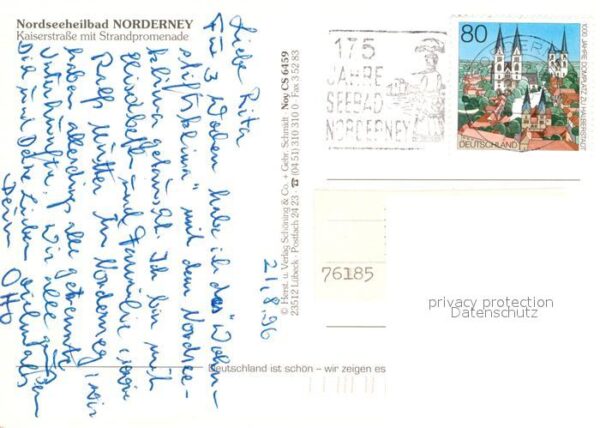 Nordseeheilbad NORDERNEY
Kaiserstraße mit Strandpromenade
21.8.96
Liebe Rita
Für 3 Wochen habe ich das "Wohn-
stiftsheim" mit dem Nordsee-
klima getauscht. Ich bin mit
Familie
Ralf Mutter in Norderney, wir
haben allerdings getrennte
Unterkünfte. Wir alle
Dich und Deine Lieben
Dein Otto
© Herst. u. Verlag Schöning & Co. + Gebr. Schmidt Noy CS 6459
23512 Lübeck · Postfach 24 23 · ☎ (04 51) 310 310 0 · Fax 3 52 83
175
JAHRE
SEEBAD
NORDERNEY
80
DEUTSCHLAND
1000 JAHRE DOMPLATZ ZU HALBERSTADT
76185
privacy protection
Datenschutz
Deutschland ist schön – wir zeigen es